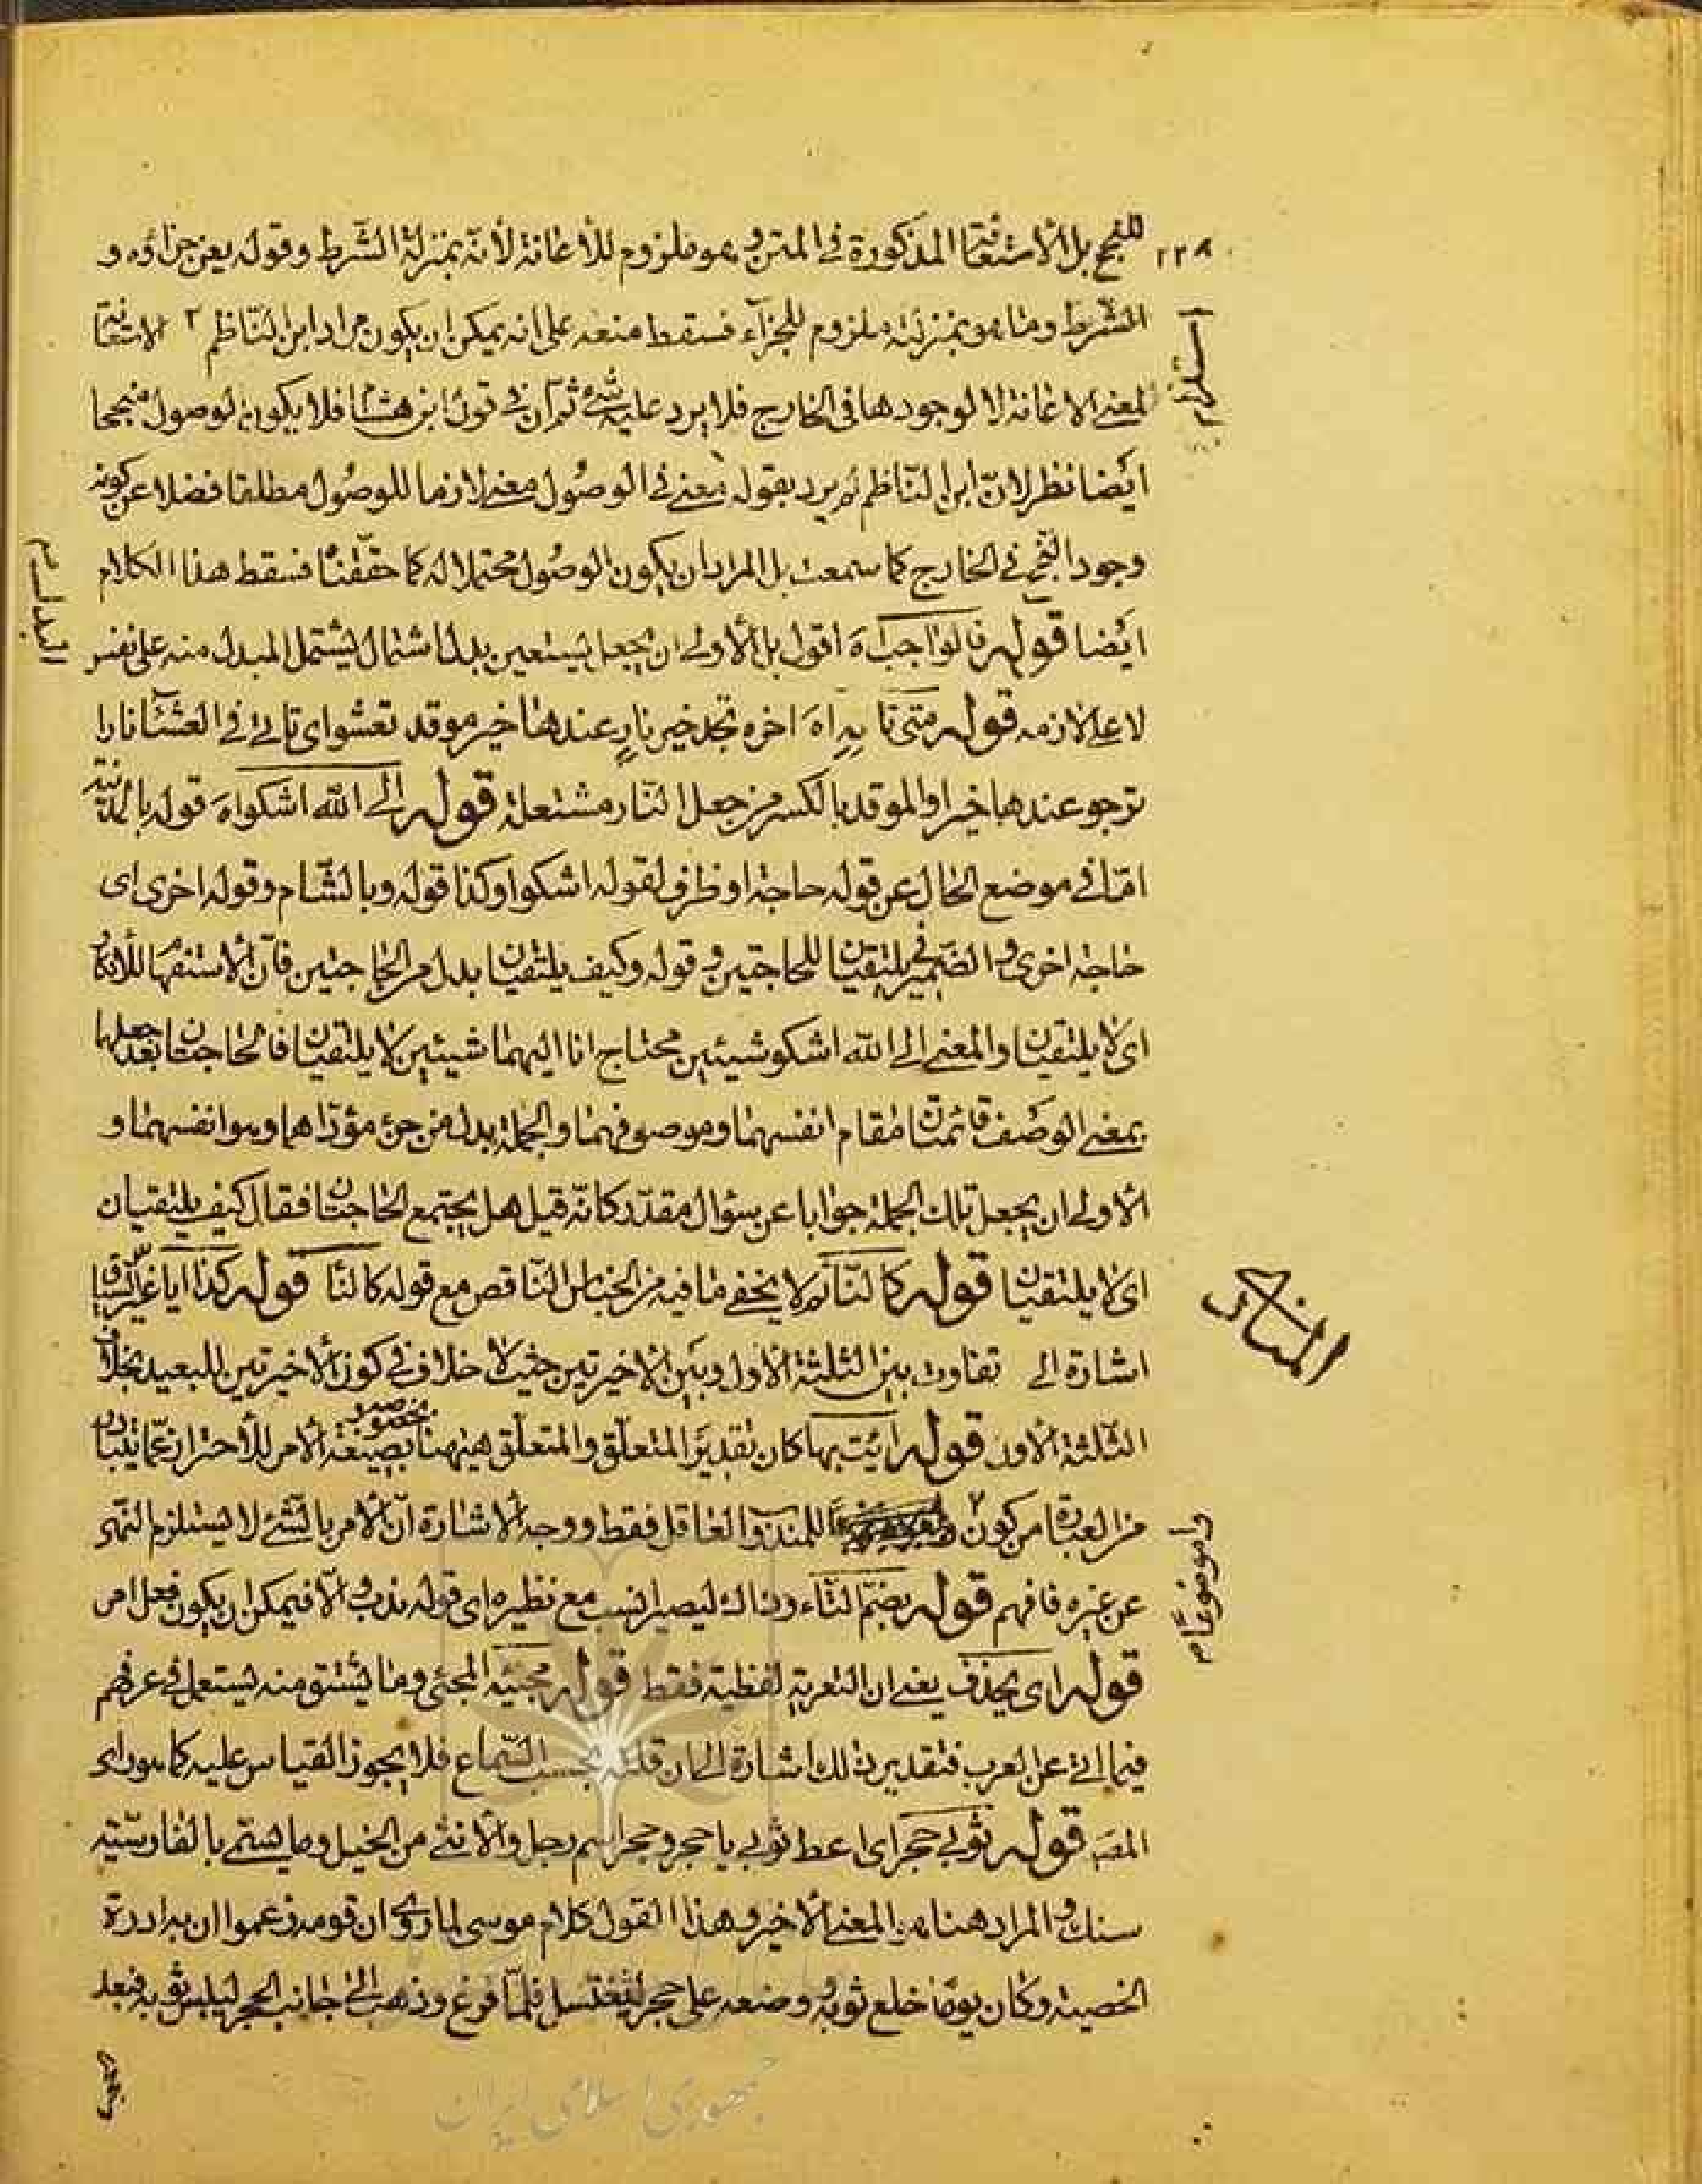 ٢٢٨
للنجح بل الأستعانة المذكورة في المتن وهو ملزوم للأعانة لأنه بمنزلة الشرط وقوله يعن جزاؤه و
الشرط وما هو بمنزلته ملزوم للجزاء فسقط منعه على انه يمكن ان يكون مراد ابن الناظم ٢ الاستعانة
لمعنى الاعانة لا لوجودها في الخارج فلا يرد عليه شئ ثم ان في قول ابن هشام فلا يكون الوصول منجحا
ايضا نظر لان ابن الناظم لم يرد بقوله معنى في الوصول معنى لازما للوصول مطلقا فضلا عن كونه
وجود النجح في الخارج كما سمعت بل المراد ان يكون الوصول محتملا له كما حققنا فسقط هذا الكلام
ايضا قوله فالواجب اه اقول بل الأولى ان يجعل يستعين بدل اشتمال ليشتمل المبدل منه على نفس
لا على لازمه قوله متى تأ به اه اخره تجد خير نار عندها خير موقد تعشوا اى تاتى في العشاء نارا
ترجو عندها خيرا والموقد بالكسر من جعل النار مشتعلة قوله الى الله اشكو اه قوله بالمدينة
اما في موضع الحال عن قوله حاجة او ظرف لقوله اشكوا وكذا قوله وبالشام وقوله اخرى اى
حاجة اخرى والضمير في يلتقيان للحاجتين وقوله وكيف يلتقيان بدل من الحاجتين فان الاستفهام للأنكار
اى لا يلتقيان والمعنى الى الله اشكو شيئين محتاج انا اليهما شيئين لا يلتقيان فالحاجتان بعد جعلهما
بمعنى الوصف قائمتان مقام انفسهما وموصوفهما والجملة بدل من جزء مؤداهما وهو انفسهما و
الأولى ان يجعل تلك الجملة جوابا عن سؤال مقدر كانه قيل هل يجتمع الحاجتان فقال كيف يلتقيان
اى لا يلتقيان قوله كالناء لا يخفى ما فيه من الجناس الناقص مع قوله كالنا قوله كذا ايا
اشارة الى تفاوت بين الثلثة الأول وبين الاخيرتين حيث لا خلاف في كون الأخيرتين للبعيد بخلاف
الثلثة الأول قوله ائت بها كان تقدير المتعلق والمتعلق هيهنا بخصوصه بصيغة الأمر للأحتراز عما يتبادر
من العبارة من كون ٢ للمندوب العاقل فقط ووجه الاشارة ان الأمر بالشئ لا يستلزم النهى
عن غيره فافهم قوله بضم التاء وذلك ليصير انسب مع نظيره اى قوله ندب والا فيمكن ان يكون فعل امر
قوله اى يحذف يعنى ان التعرية لفظية فقط قوله مجيئه المجئ وما يشتق منه يستعمل في عرفهم
فيما اتى عن العرب فتقدير ذلك اشارة الى ان قلته بحسب السماع فلا يجوز القياس عليه كما هو راى
المص قوله ثوبى حجر اى اعط ثوبى يا حجر وحجر اسم رجل والأنثى من الخيل وما يسمى بالفارسية
سنك والمراد هنا هو المعنى الأخير وهذا القول كلام موسى لما روى ان قومه زعموا ان به ادرة
الخصية وكان يوما خلع ثوبه و وضعه على حجر ليغتسل فلما فرغ وذهب الى جانب الحجر ليلبس ثوبه فبعد
استلزام
البدل
المنادى
جمهوری اسلامی ایران